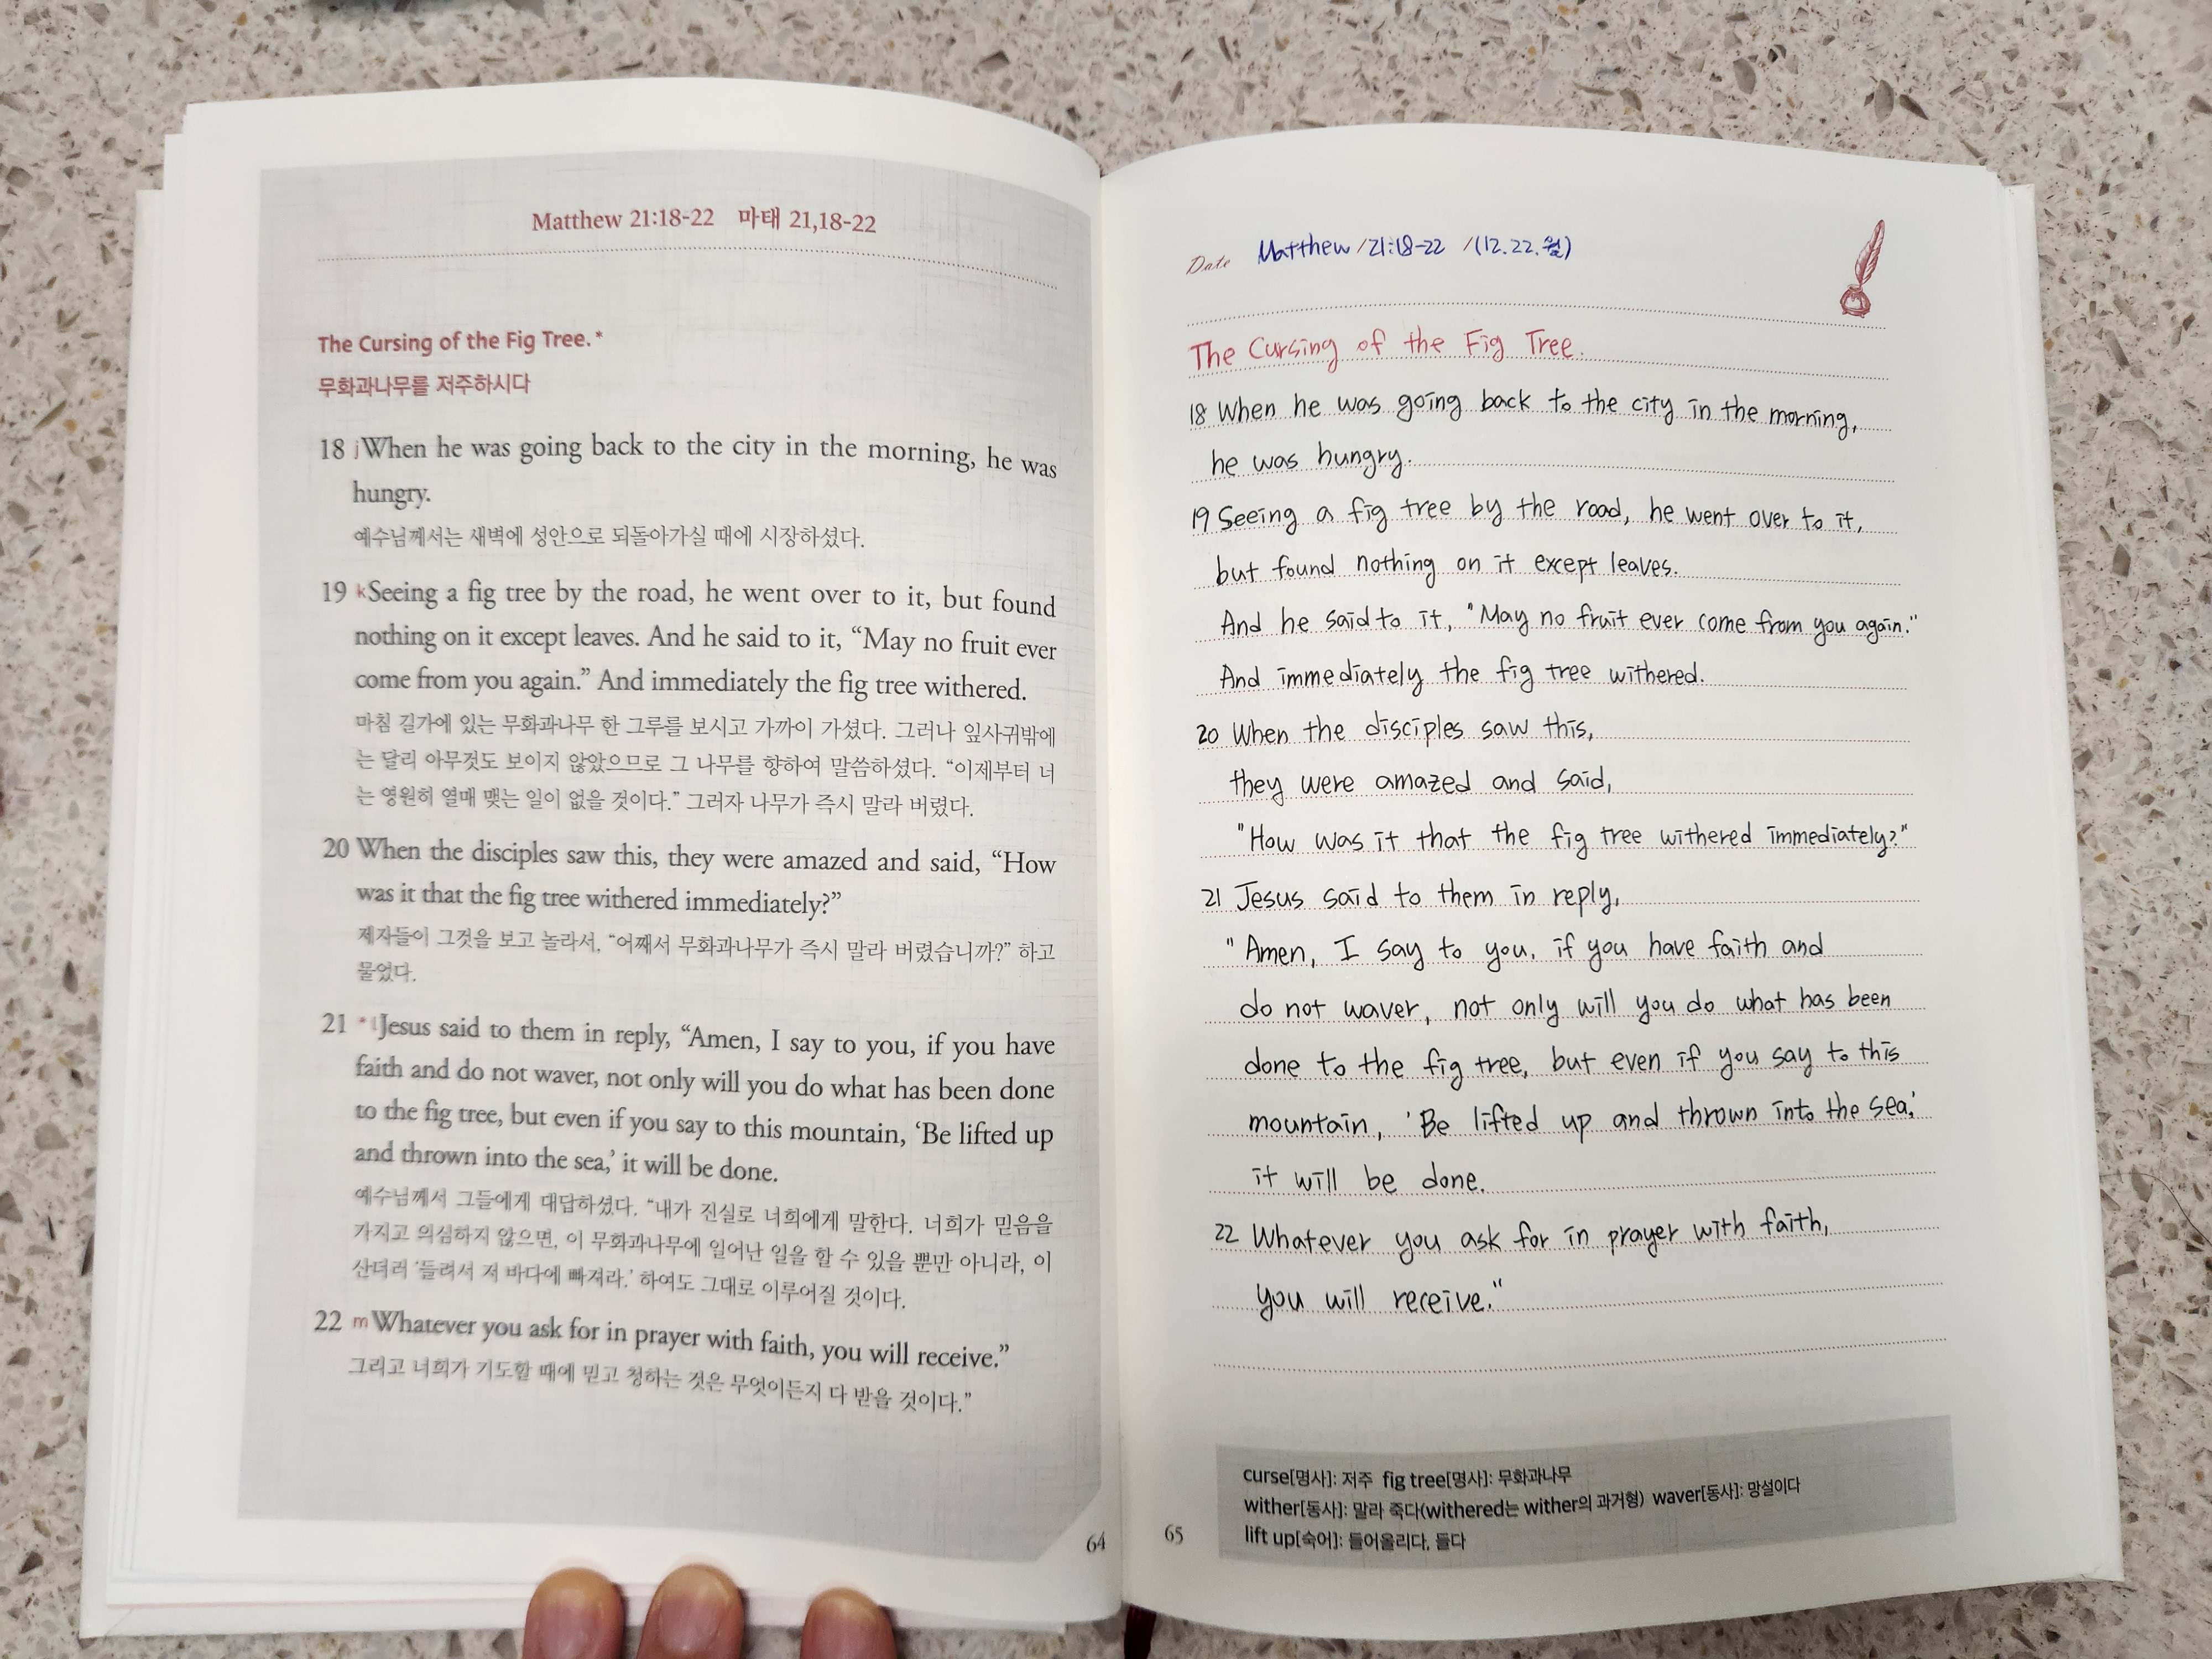 Matthew 21:18-22 마태 21,18-22
The Cursing of the Fig Tree.*
무화과나무를 저주하시다
18 jWhen he was going back to the city in the morning, he was
hungry.
예수님께서는 새벽에 성안으로 되돌아가실 때에 시장하셨다.
19 kSeeing a fig tree by the road, he went over to it, but found
nothing on it except leaves. And he said to it, “May no fruit ever
come from you again.” And immediately the fig tree withered.
마침 길가에 있는 무화과나무 한 그루를 보시고 가까이 가셨다. 그러나 잎사귀밖에
는 달리 아무것도 보이지 않았으므로 그 나무를 향하여 말씀하셨다. “이제부터 너
는 영원히 열매 맺는 일이 없을 것이다.” 그러자 나무가 즉시 말라 버렸다.
20 When the disciples saw this, they were amazed and said, “How
was it that the fig tree withered immediately?”
제자들이 그것을 보고 놀라서, “어째서 무화과나무가 즉시 말라 버렸습니까?” 하고
물었다.
21 * lJesus said to them in reply, “Amen, I say to you, if you have
faith and do not waver, not only will you do what has been done
to the fig tree, but even if you say to this mountain, ‘Be lifted up
and thrown into the sea,’ it will be done.
예수님께서 그들에게 대답하셨다. “내가 진실로 너희에게 말한다. 너희가 믿음을
가지고 의심하지 않으면, 이 무화과나무에 일어난 일을 할 수 있을 뿐만 아니라, 이
산더러 ‘들려서 저 바다에 빠져라.’ 하여도 그대로 이루어질 것이다.
22 mWhatever you ask for in prayer with faith, you will receive.”
그리고 너희가 기도할 때에 믿고 청하는 것은 무엇이든지 다 받을 것이다.”
64
Date Matthew /21:18-22 /(12.22.월)
The Cursing of the Fig Tree.
18 When he was going back to the city in the morning,
he was hungry.
19 Seeing a fig tree by the road, he went over to it,
but found nothing on it except leaves.
And he said to it, "May no fruit ever come from you again."
And immediately the fig tree withered.
20 When the disciples saw this,
they were amazed and said,
"How was it that the fig tree withered immediately?"
21 Jesus said to them in reply,
"Amen, I say to you, if you have faith and
do not waver, not only will you do what has been
done to the fig tree, but even if you say to this
mountain, 'Be lifted up and thrown into the sea,'
it will be done.
22 Whatever you ask for in prayer with faith,
you will receive."
curse[명사]: 저주 fig tree[명사]: 무화과나무
wither[동사]: 말라 죽다(withered는 wither의 과거형) waver[동사]: 망설이다
lift up[숙어]: 들어올리다, 들다
65